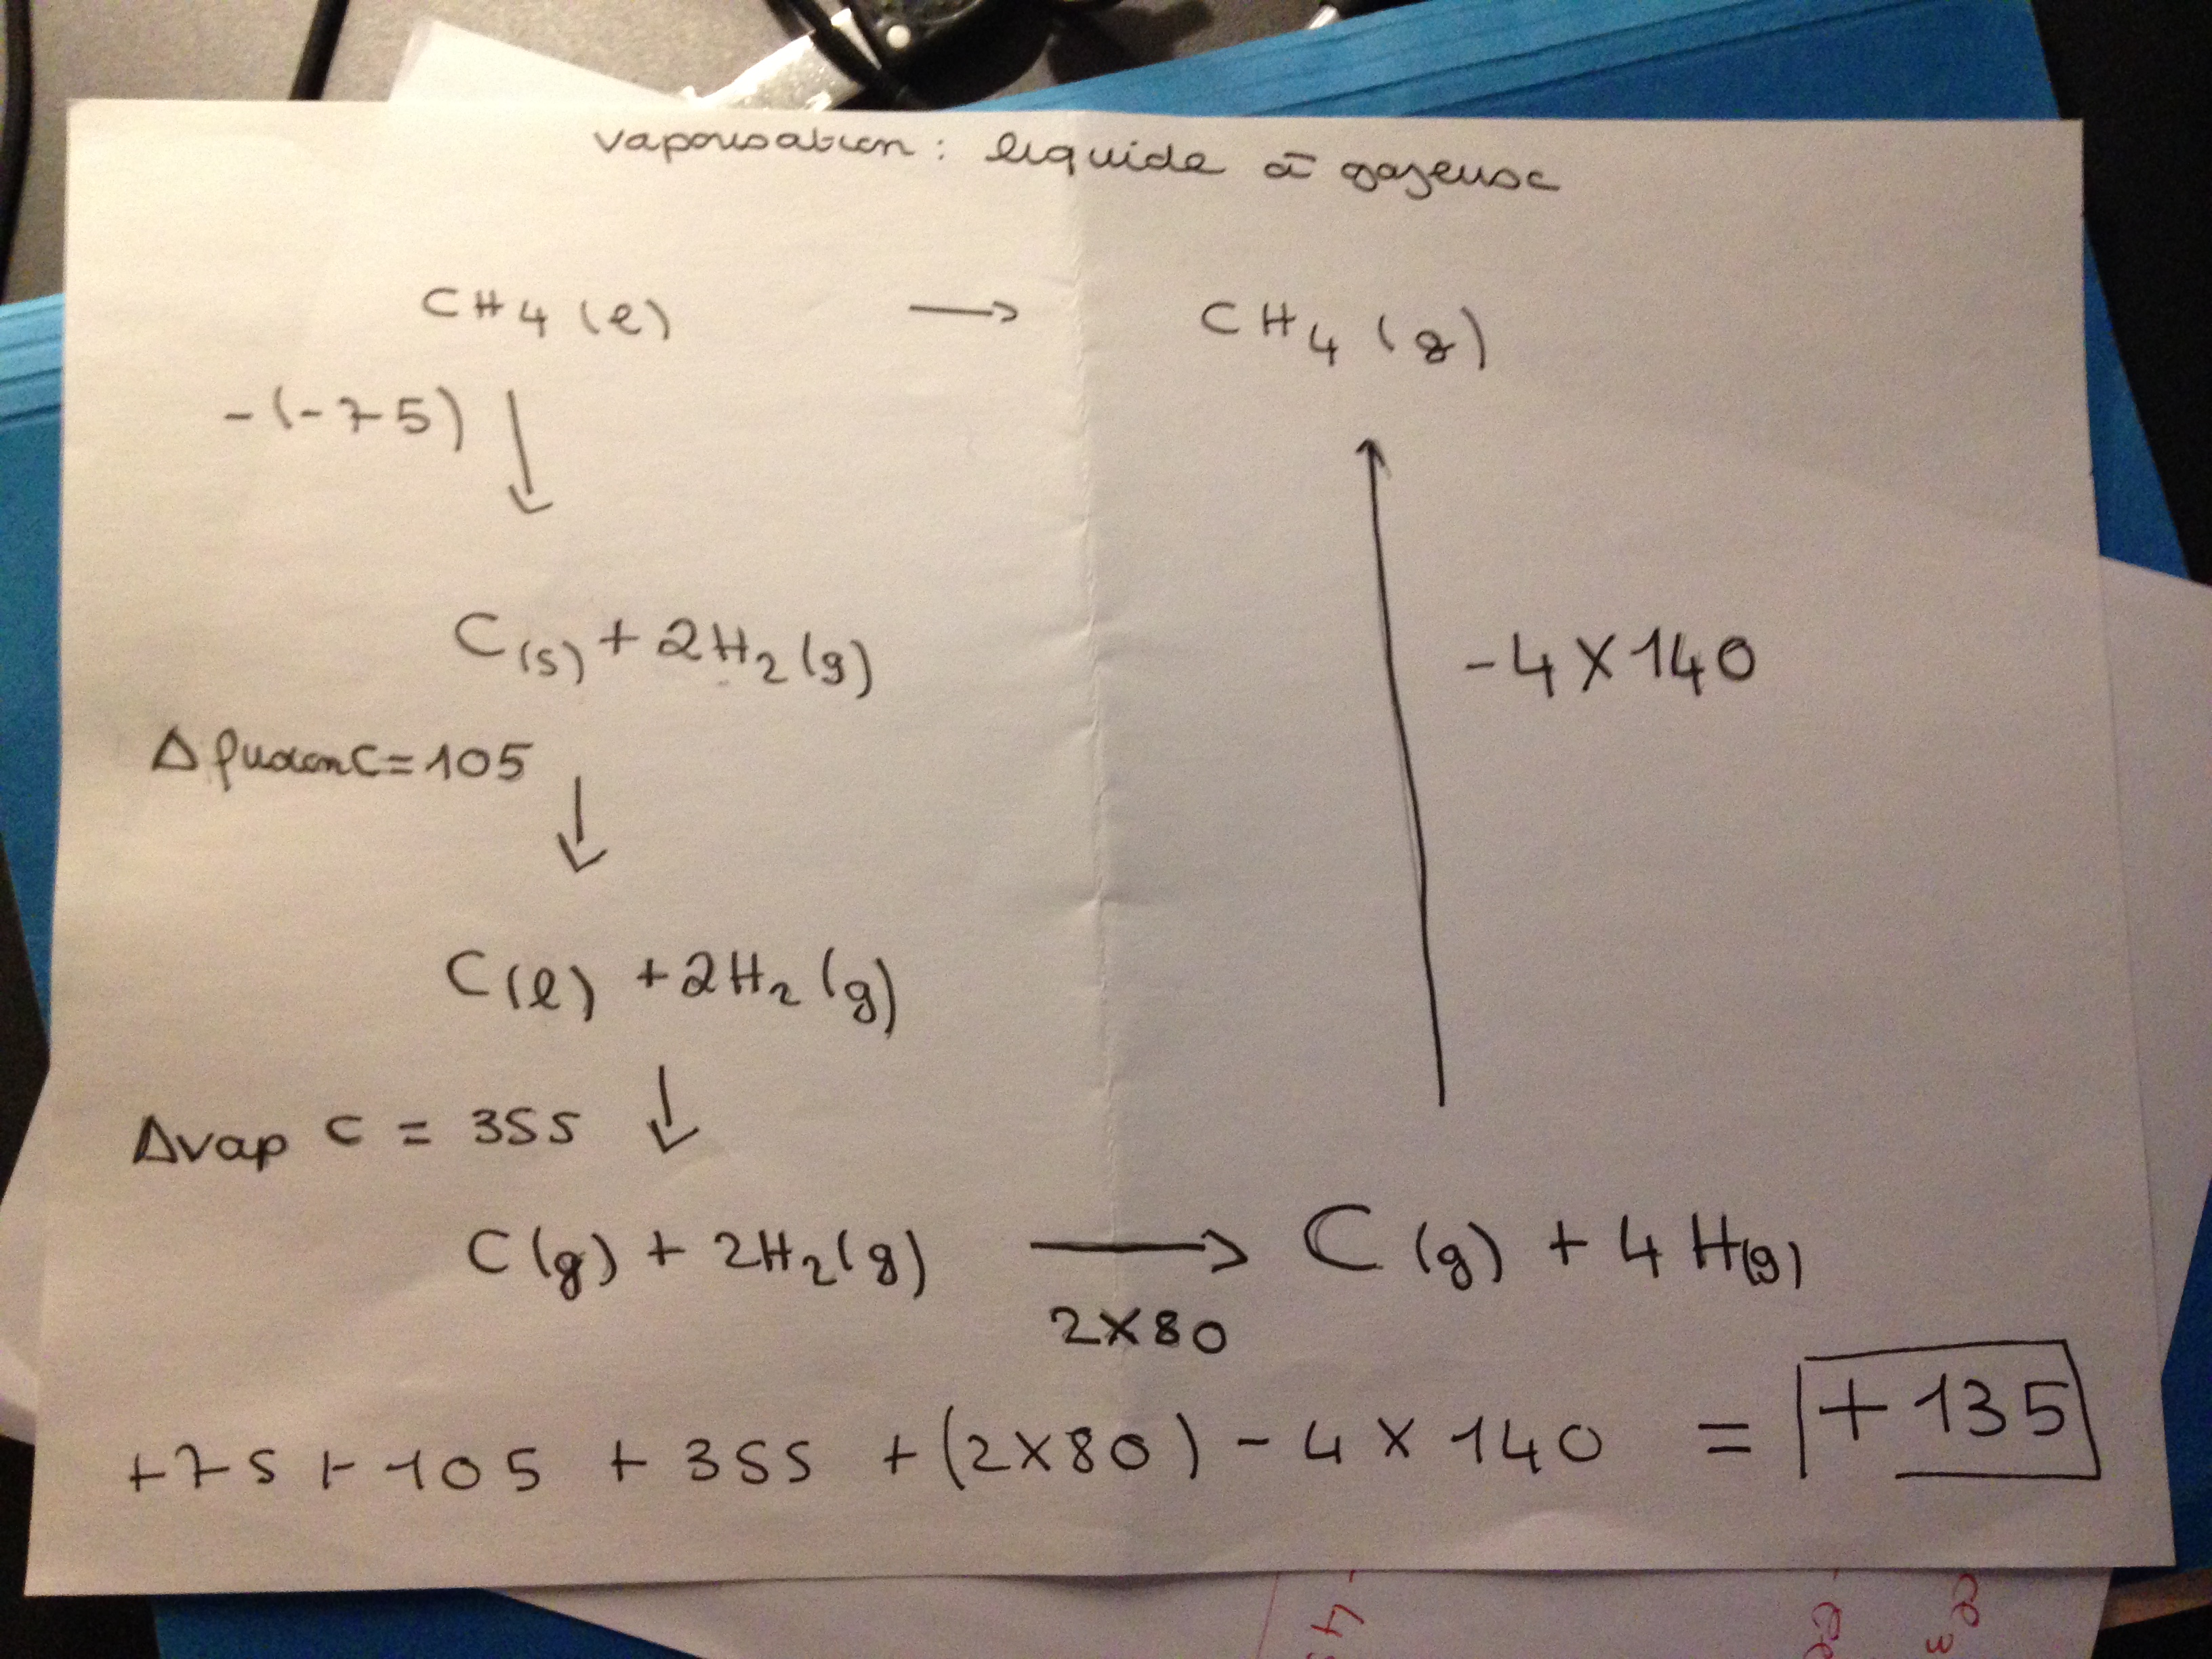 vaporisation : liquide à gazeuse
CH4 (l) → CH4 (g)
-(-75) ↓
C(s) + 2H2 (g)
-4 X 140
Δ fusion C = 105 ↓
C(l) + 2H2 (g)
Δvap C = 355 ↓
C (g) + 2H2 (g) → C (g) + 4 H(g)
2X80
+75 + 105 + 355 + (2X80) - 4 X 140 = + 135